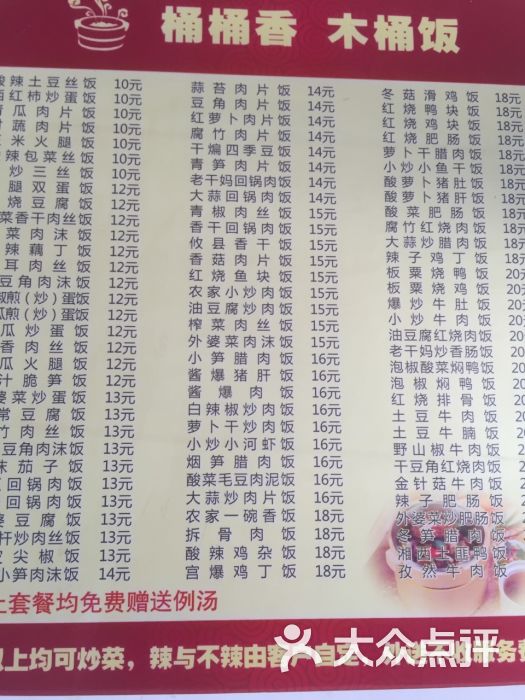 桶桶香 木桶饭
酸辣土豆丝饭 10元
西红柿炒蛋饭 10元
青瓜肉片饭 10元
蔬肉片饭 10元
米火腿饭 10元
辣包菜丝饭 10元
炒三丝饭 10元
腿双蛋饭 12元
烧豆腐饭 12元
菜香干肉丝饭 12元
菜肉沫饭 12元
辣藕丁饭 12元
耳肉丝饭 12元
豆角肉沫饭 12元
椒煎(炒)蛋饭 12元
瓜煎(炒)蛋饭 12元
瓜炒蛋饭 12元
香肉丝饭 12元
瓜火腿饭 12元
汁脆笋饭 12元
婆菜炒蛋饭 13元
常豆腐饭 13元
竹肉丝饭 13元
豆角肉沫饭 13元
茄子饭 13元
回锅肉饭 13元
回锅肉饭 13元
婆豆腐饭 13元
杆炒肉丝饭 13元
皮尖椒饭 13元
小笋肉沫饭 14元
蒜苔肉片饭 14元
豆角肉片饭 14元
红萝卜肉片饭 14元
腐竹肉片饭 14元
干煸四季豆饭 14元
青笋肉片饭 14元
老干妈回锅肉饭 14元
大蒜回锅肉饭 14元
青椒肉丝饭 15元
香干回锅肉饭 15元
攸县香干饭 15元
香菇肉片饭 15元
红烧鱼块饭 15元
农家小炒肉饭 15元
油豆腐炒肉饭 15元
榨菜肉丝饭 15元
外婆菜肉沫饭 15元
小笋腊肉饭 16元
酱爆猪肝饭 16元
酱爆肉饭 16元
白辣椒炒肉饭 16元
萝卜干炒肉饭 16元
小炒小河虾饭 16元
烟笋腊肉饭 16元
酸菜毛豆肉泥饭 16元
大蒜炒肉片饭 16元
农家一碗香饭 18元
拆骨肉饭 18元
酸辣鸡杂饭 18元
宫爆鸡丁饭 18元
冬菇滑鸡饭 18元
红烧鸭块饭 18元
红烧鸡块饭 18元
红烧肥肠饭 18元
萝卜干腊肉饭 18元
小炒小鱼干饭 18元
酸萝卜猪肚饭 18元
酸萝卜猪肝饭 18元
酸菜肥肠饭 18元
腐竹红烧肉饭 18元
大蒜炒腊肉饭 18元
辣子鸡丁饭 18元
板栗烧鸭饭 20元
板栗烧鸡饭 20元
爆炒牛肚饭 20元
小炒牛肉饭 20元
油豆腐红烧肉饭 20
老干妈炒香肠饭 20
泡椒酸菜焖鸭饭 20
泡椒焖鸭饭 20
红烧排骨饭 20
土豆牛肉饭 20
土豆牛腩饭 20
野山椒牛肉饭 2
干豆角红烧肉饭 2
金针菇牛肉饭 2
辣子肥肠饭 2
外婆菜炒肥肠饭
冬笋腊肉饭
湘西土匪鸭饭
孜然牛肉饭
上套餐均免费赠送例汤
以上均可炒菜，辣与不辣由客户自定
大众点评